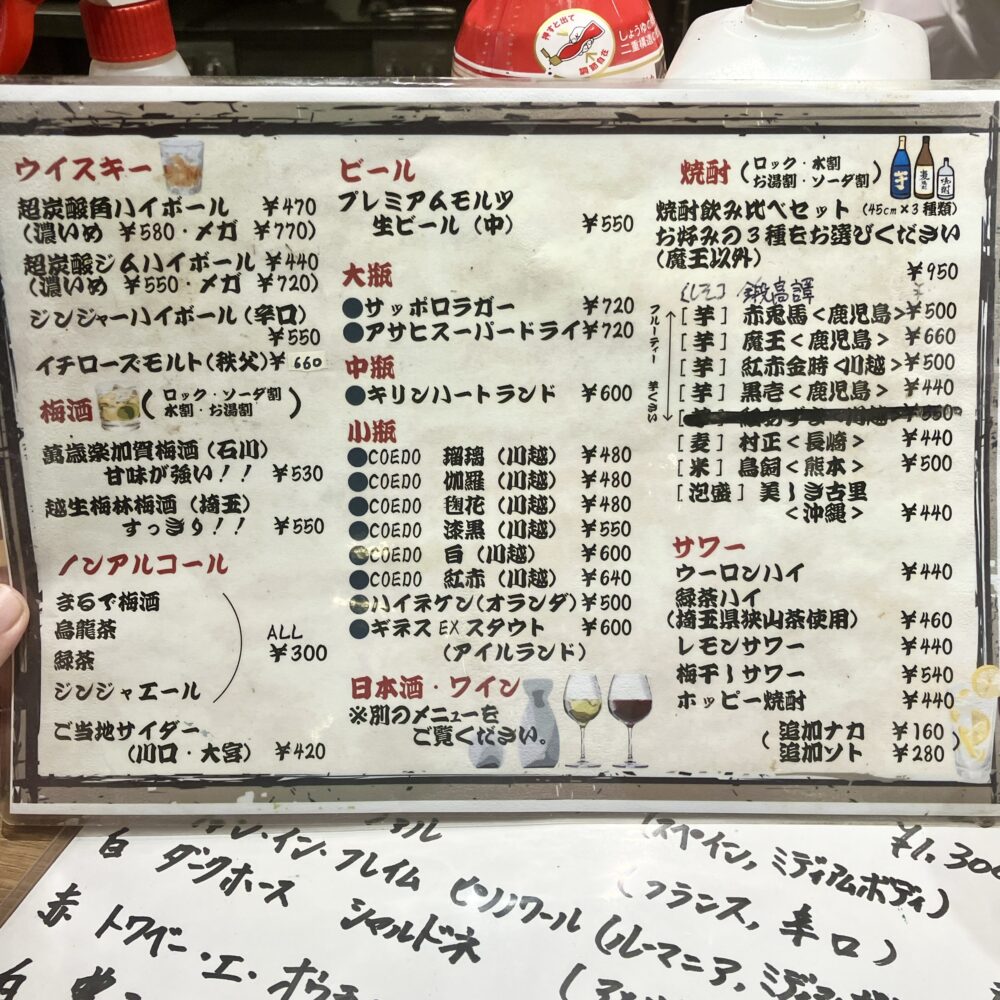 押すと出て
調節自在
しょうゆ
二重構造の
ウイスキー
超炭酸角ハイボール ¥470
(濃いめ ¥580・メガ ¥770)
超炭酸ジムハイボール ¥440
(濃いめ ¥550・メガ ¥720)
ジンジャーハイボール(辛口)
¥550
イチローズモルト(秩父)¥660
梅酒(ロック・ソーダ割
水割・お湯割)
萬歳楽加賀梅酒(石川)
甘味が強い!! ¥530
越生梅林梅酒(埼玉)
すっきり!! ¥550
ノンアルコール
まるで梅酒
烏龍茶
緑茶
ジンジャエール
ALL
¥300
ご当地サイダー
(川口・大宮) ¥420
ビール
プレミアムモルツ
生ビール(中) ¥550
大瓶
●サッポロラガー ¥720
●アサヒスーパードライ¥720
中瓶
●キリンハートランド ¥600
小瓶
●COEDO 瑠璃(川越) ¥480
●COEDO 伽羅(川越) ¥480
●COEDO 毬花(川越) ¥480
●COEDO 漆黒(川越) ¥550
●COEDO 白(川越) ¥600
●COEDO 紅赤(川越) ¥640
●ハイネケン(オランダ)¥500
●ギネスEXスタウト ¥600
(アイルランド)
日本酒・ワイン
※別のメニューを
ご覧ください。
焼酎(ロック・水割
お湯割・ソーダ割)
芋
焼酎飲み比べセット(45cm×3種類)
お好みの3種をお選びください
(魔王以外)
¥950
[しそ] 鍛高譚 ¥
フルーティー
芋くさい
[芋] 赤兎馬<鹿児島>¥500
[芋] 魔王<鹿児島> ¥660
[芋] 紅赤金時<川越> ¥500
[芋] 黒壱<鹿児島> ¥440
¥550
[麦] 村正<長崎> ¥440
[米] 鳥飼<熊本> ¥500
[泡盛] 美しき古里
<沖縄> ¥440
サワー
ウーロンハイ ¥440
緑茶ハイ
(埼玉県狭山茶使用) ¥460
レモンサワー ¥440
梅干しサワー ¥540
ホッピー焼酎 ¥440
(追加ナカ ¥160
追加ソト ¥280)
イン・フレイム
(スペイン,ミディアムボディ)
¥1,300
白 ダークホース シャルドネ
ピノノワール
(フランス,辛口)
赤 トワベニ・エ・
(ルーマニア,ミディ
白